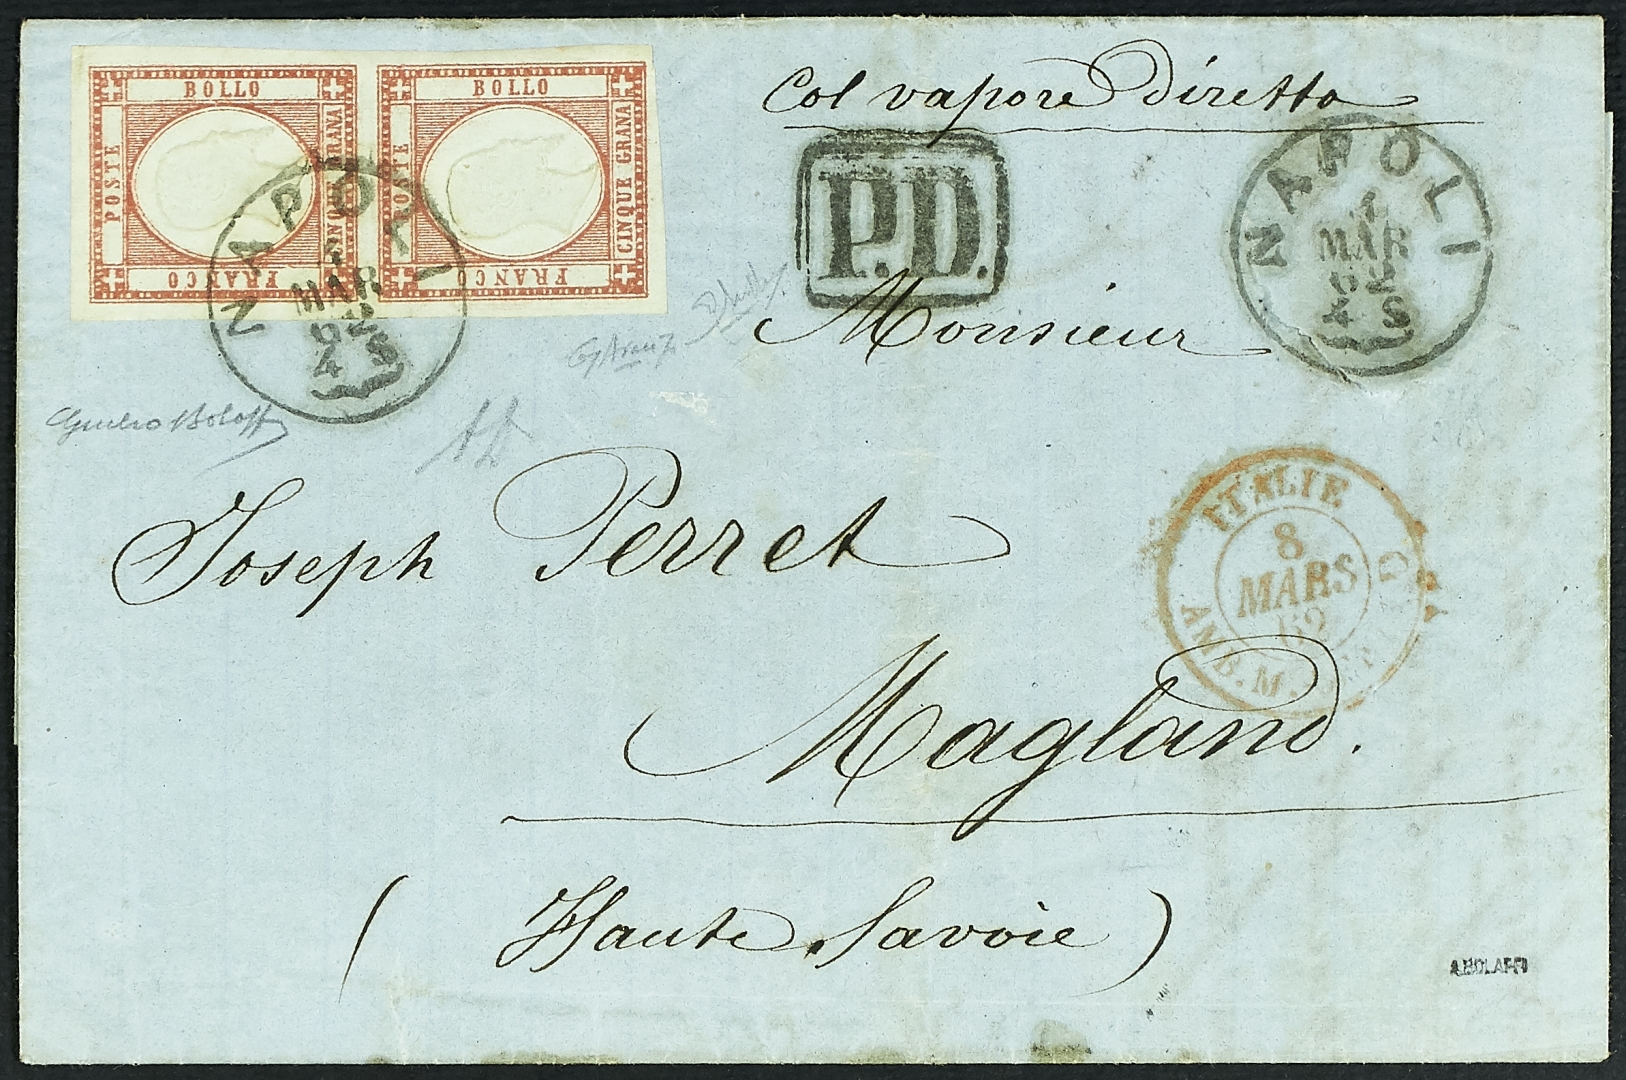 BOLLO
POSTE
CINQUE GRANA
FRANCO
BOLLO
POSTE
CINQUE GRANA
FRANCO
Col vapore diretto
NAPOLI
MAR
62
4 S
P.D.
NAPOLI
1
MAR
62
4 S
Monsieur
Giulio Bolaffi
AD
Joseph Perret
ITALIE
8
MARS
62
AMB. M.
Magland.
(Haute Savoie)
A.BOLAFFI